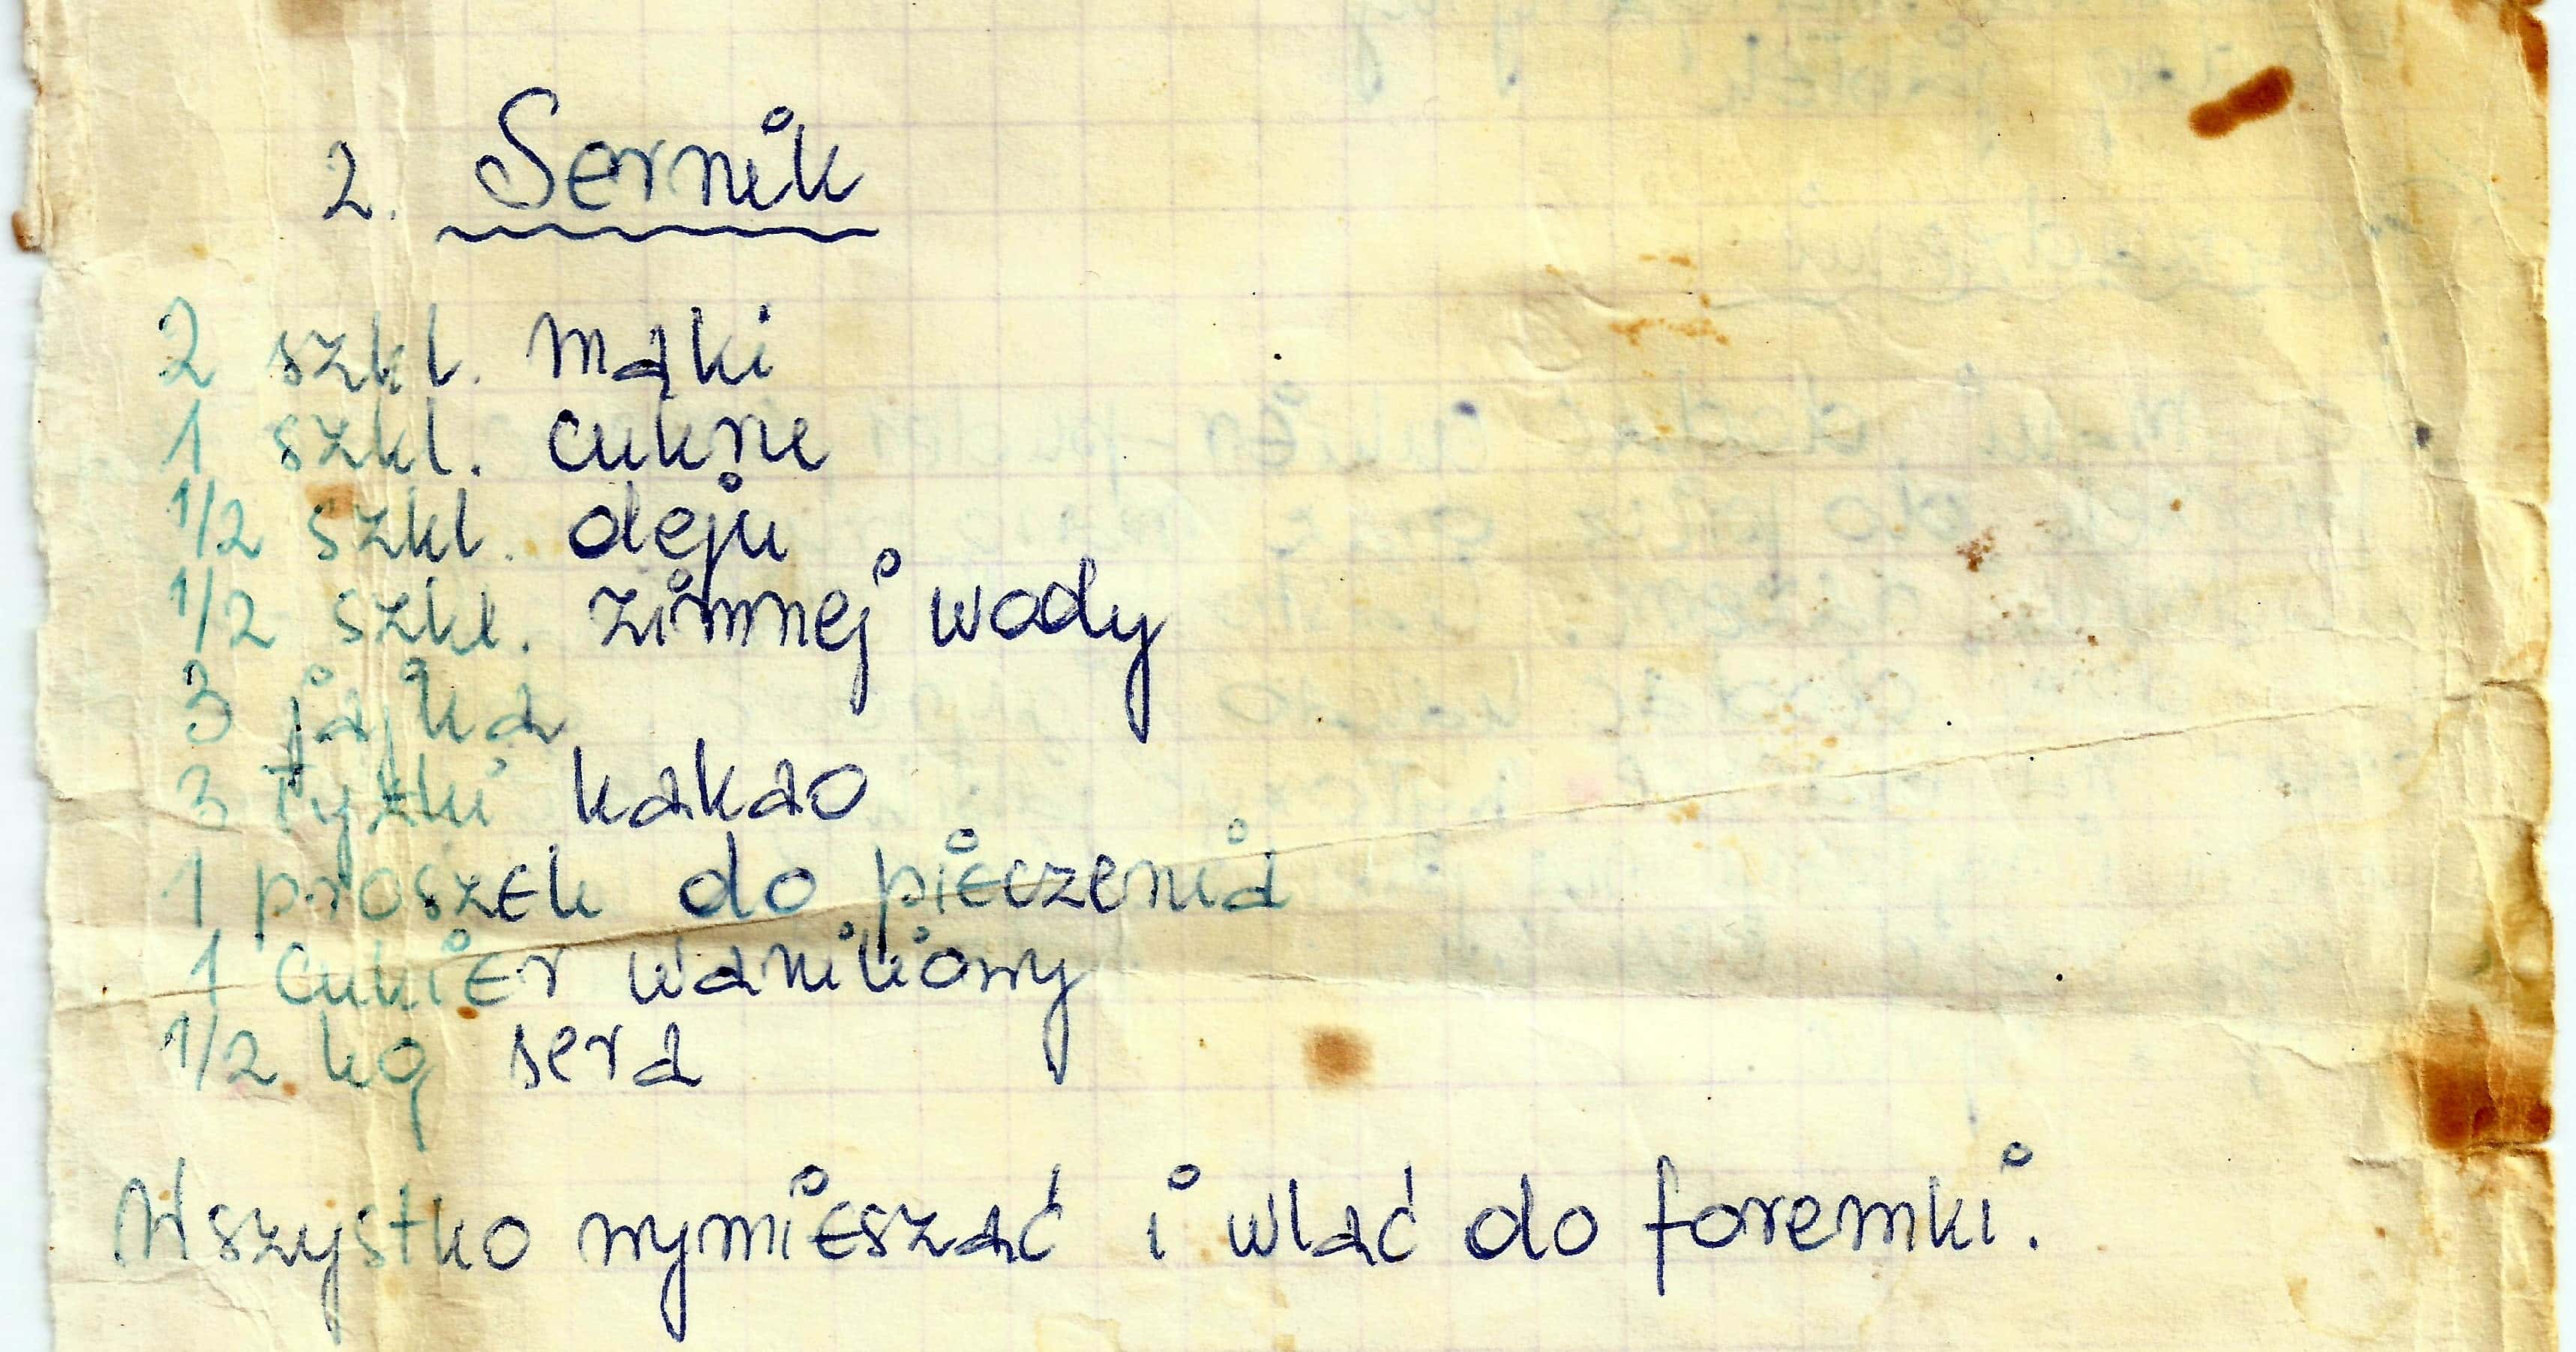 2. Sernik
2 szkl. mąki
1 szkl. cukru
1/2 szkl. oleju
1/2 szkl. zimnej wody
3 jajka
3 łyżki kakao
1 proszek do pieczenia
1 cukier waniliowy
1/2 kg sera
Wszystko wymieszać i wlać do foremki.